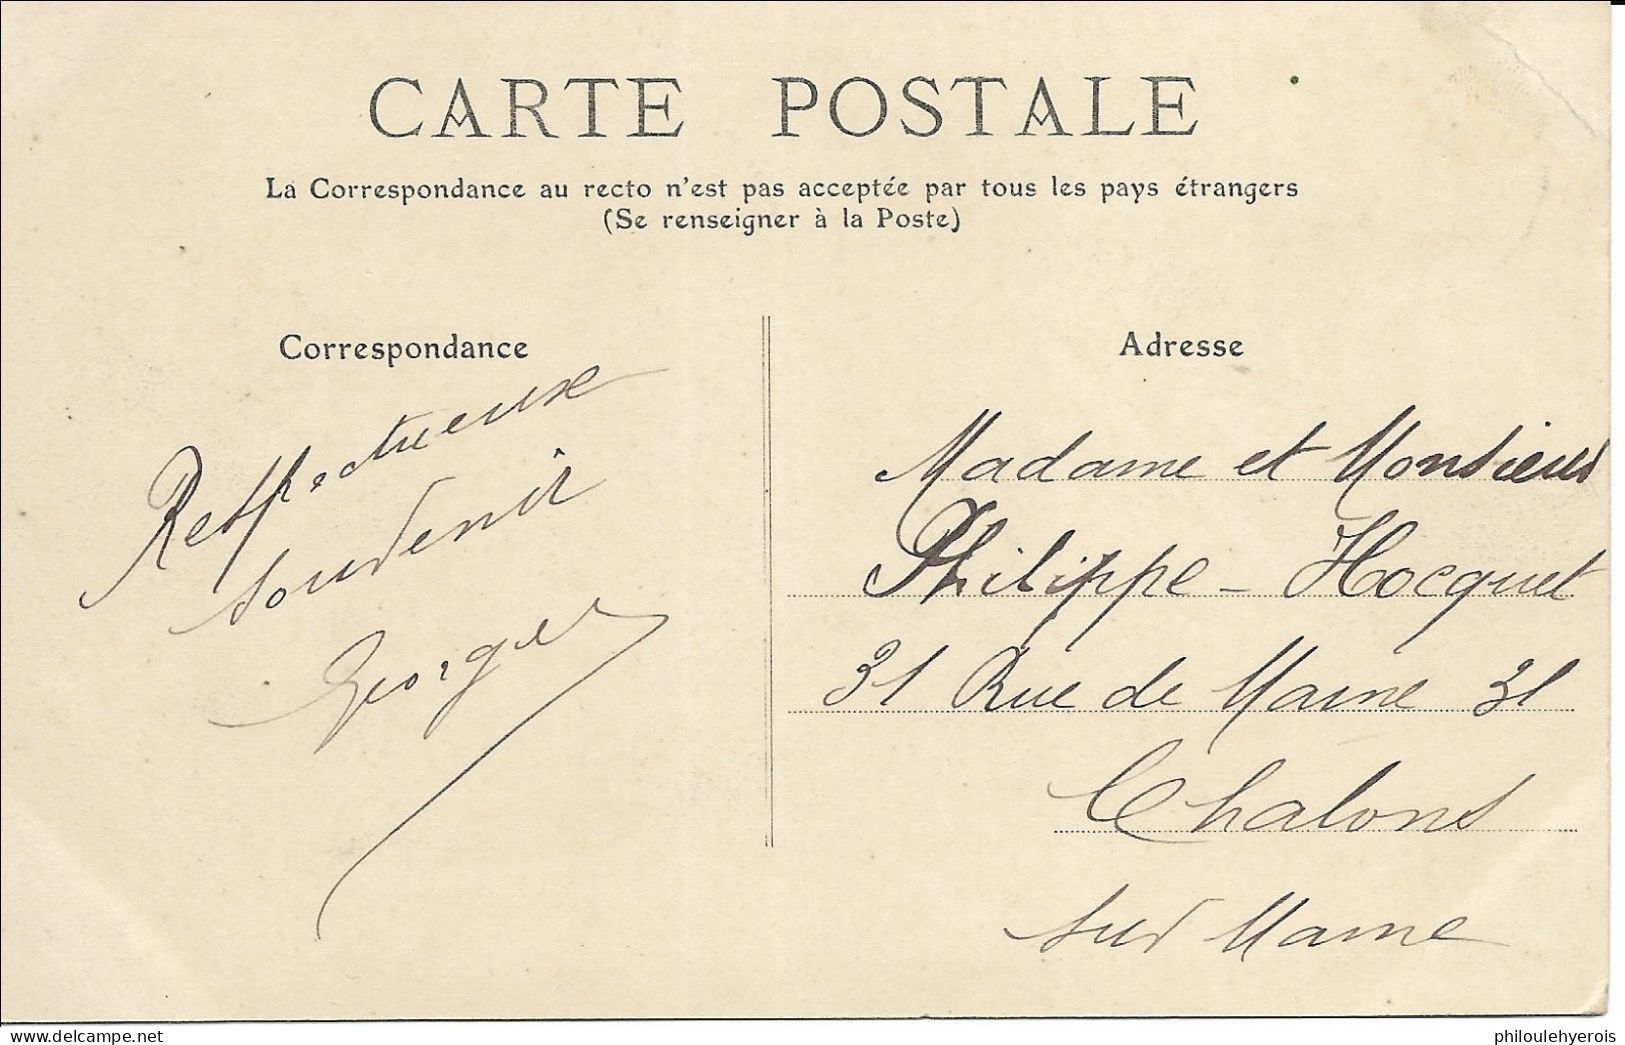 CARTE POSTALE
La Correspondance au recto n'est pas acceptée par tous les pays étrangers
(Se renseigner à la Poste)
Correspondance
Respectueux
souvenir
Georges
Adresse
Madame et Monsieur
Philippe - Hocquet
31 Rue de Marne 31
Chalons
sur Marne
delcampe.net
philoulehyerois